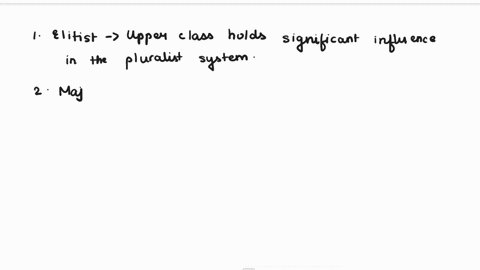 1. Elitist -> Upper class holds significant influence
in the pluralist system.
2. Maj